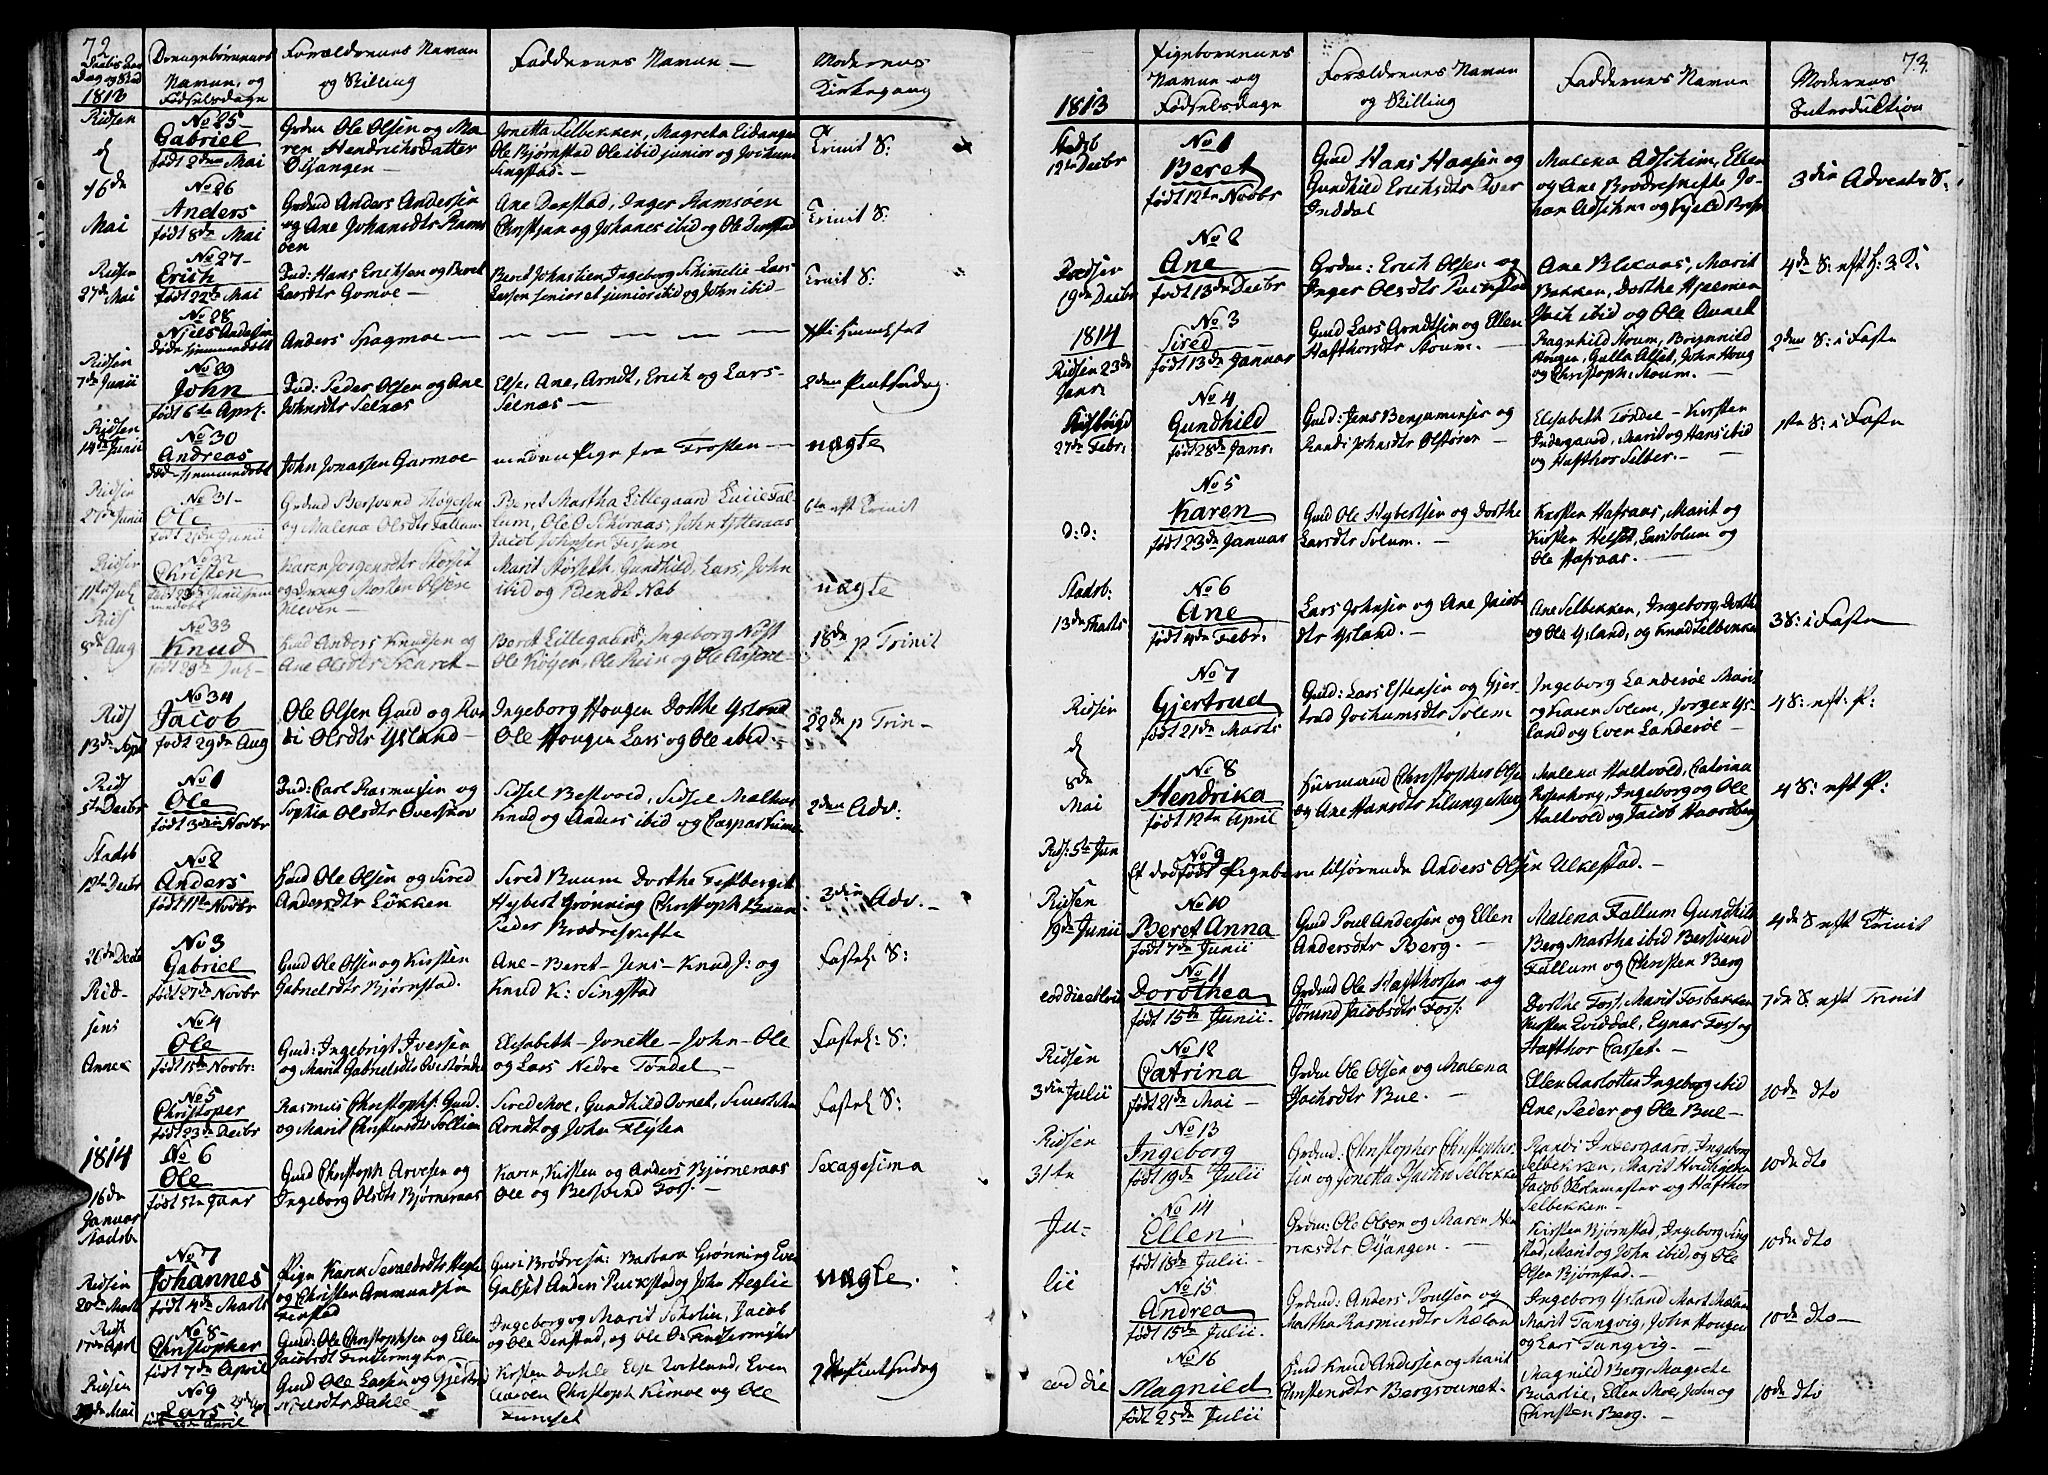 72
Daabs
Dag og Stad
1813
Drengebørnenes
Navne og
Fødselsdage
Forældrenes Navne
og Stilling
Faddernes Navne —
Moderens
Kirkegang
Ridsen
d
16de
Mai
No 25
Gabriel
født 2den Mai
Grdm Ole Olsen og Ma-
ren Hendrichsdatter
Oljangen —
Jonetta Selbekken, Magreta Eidangen
Ole Bjørnstad Ole ibid junior og Jochum
Singstad —
Trinit S:
No 26
Anders
født 8de Mai
Grdmd Anders Andersen
og Ane Johansdtr Ramsøen
Ane Denstad, Inger Ramsøen
Christian og Johanes ibid og Ole Denstad
Trinit S:
Ridsen
27de Mai
No 27
Erich
født 22de Mai
Ind: Hans Erichsen og Beret
Larsdtr Gomoe —
Larsen senior et junior ibid og John ibid
Trinit S:
No 28
Niels Andersen
døde hjemmedøbt
Anders Spagmoe —
Ridsen
7de Junii
No 29
John
født 6te April
Ind: Peder Olsen og Ane
Johnsdtr Selnæs
Else, Ane, Arndt, Erich og Lars
Selnæs —
2den Pintsedag
Ridsen
14de Junii
No 30
Andreas
død hjemmedøbt
John Jonassen Garmoe
med en Pige fra Frosten —
uægte
Ridsen
27de Junii
No 31
Ole
Grdmd Bersvend Thøgersen
og Malena Olsdtr Fallum
Beret Martha Lillegaard Lucie Fal-
lum, Ole O Skdraas, John Ytteraas
Jacob Johnsen Fessum
6te eft Trinit
Ridsen
11te Juli
No 32
Christen
Karen Jørgensdtr Størset
og Dreng Morten Olsen
Kleven —
Marit Størseth, Gundhild, Lars, John
ibid og Bendt Nab
uægte
Rids
8de Aug
No 33
Knud
født 29de Juli —
Grd Anders Knudsen og
Ane Olsdtr Skaret —
Beret Lillegaard, Ingeborg Nøst
Ole Krogen, Ole Rein og Ole Aasene —
18de p Trinit
Rids
13de Sept
No 34
Jacob
født 29de Aug
Ole Olsen Grd og Ran
di Olsdtr Ysland —
Ingeborg Hougen Dorthe Ysland
Ole Hougen Lars og Ole ibid. —
22de p Trin —
Rids
5te Decbr
No 1
Ole
født 3die Novbr
Ind: Carl Rasmussen og
Sophia Olsdtr Overskov
Sidsel Bestvold, Sidsel Malhus
Knud og Anders ibid og Caspar Kime
2den Adv:
Stadsb
12te Decbr
No 2
Anders
født 11te Novbr
Grd Ole Olsen og Sired
Andersdtr Løkken
Sired Buum Dorthe Festbergeit
Hybert Grønning Christoph Buum
Peder Brædreskifte
3die Adv. —
26de Decbr
Rid-
sens
Annex
No 3
Gabriel
født 27de Novbr
Gmd Ole Olsen og Kirsten
Gabrielsdtr Bjørnstad.
Ane — Beret — Jens — Knud J: og
Knud K: Singstad
Fastel: S:
No 4
Ole
født 15de Novbr:
Gmd: Ingebrigt Iversen
og Marit Gabrielsdtr Øvretøndel
Elisabeth — Jonette — John — Ole
og Lars Nedre Tøndel —
Fastel: S:
No 5
Christoper
født 23de Decbr
Rasmus Christophs: Gmd.
og Marit Christensdtr Sollien
Sired Moe, Gundhild Ovnet, Sivert Moe
Arndt og John Flyten
Fastel S:
1814
16de
Januar
Stadsb
No 6
Ole
født 5te Janr
Gmd Christoph Arvesen og
Ingeborg Olsdtr Bjørneraas
Karen, Kirsten og Anders Bjørneraas
Ole og Bersvend Foss. —
Sexagesima
Ridsen
20de Marts
No 7
Johannes
født 4de Marts
Pige Karen Sevaldsdtr Heglie
og Christen Ammundsen
Guri Brødresk: Barbara Grønning Even
John Heglie
uægte.
Rids
17de April
No 8
Christopher
født 7de April
Gmd: Ole Christophsen og Ellen
Jacobsdtr Findermyhr
Ingeborg og Marit Soholen, Jacob
og Ole Denstad, og Ole O: Findermyhr
Ridsen
Mai
No 9
Lars
Gmd Ole Larsen og Gjertrud
Nielsdtr Dahle
Kirsten Dahle Else Vutland, Even
Christoph Kimoe og Ole
2 Pintsedag
73.
1813
Pigebørnenes
Navne og
Fødselsdage
Forældrenes Navne
og Stilling
Faddernes Navne
Moderens
Introduktion
Stadsb
12te Decbr
No 1
Beret
født 12te Novbr
Gmd Hans Hansen og
Gundhild Erichsdtr Over
Inddal
Malena Adsihim, Ellen
og Ane Brodreskifte, Jo-
han Adsihm og Kield
3die Advents S.
Ridsen
19de Decbr
No 2
Ane
født 13de Decbr
Grdm: Erich Olsen og
Inger Olsdtr Puckstad
Ane Blekaas, Marit
Bekken, Dorthe Hjelmen
Joch ibid og Ole Aunet
4de S: eft H: 3 K:
1814
Ridsen 23de
Janr:
No 3
Sired
født 13de Januar
Gmd Lars Arndtsen og Ellen
Hafthorsdtr Stoum. —
Ragnhild Stoum, Brynnild
Hougen, Gulla Alset, John Houg
og Christoph: Stoum. —
2den S: i Faste
27de Febr:
No 4
Gundhild
født 28de Janr:
Gmd: Jens Benjaminsen og
Randi Johnsdtr Olstøren
Elisabeth Tøndel — Kirsten
Indergaard, Marit og Hans ibid
og Hafthor Selber. —
1ste S: i Faste
d: d:
No 5
Karen
født 23de Januar
Gmd Ole Hybertsen og Dorthe
Larsdtr Solum. —
Kirsten Hafraas, Marit og
Kirsten Helset, Lars Solum og
Ole Hafraas. —
Stadsb:
13de Marts
No 6
Ane
født 4de Febr.
Lars Johnsen og Ane Jacobs
dtr Ysland. —
Ane Selbekken, Ingeborg, Dorthe
og Ole Ysland, og Knud Selbekken
3 S: i Faste
Ridsen
No 7
Gjertrud
født 21de Marts
Gmd: Lars Estensen og Gjer-
trud Jochumsdtr Solem
Ingeborg Landerøe Marit
og Karen Solem, Jørgen Ys-
land og Even Landerøe —
4 S: eft: P:
d
8de
Mai
No 8
Hendrika
født 12te April
Huusmand Christopher Olsen
og Ane Hansdtr Klungeberg
Malena Haltvold, Catrina
Rosenborg, Ingeborg og Ole
Haltvold og Jacob Haardberg
4 S: eft P:
Rids: 5te Jun
No 9
Et dødfødt Pigebarn tilhørende Anders Olsen Ulkestad. —
Ridsen
19de Junii
No 10
Beret Anna
født 7de Junii
Gmd Poul Andersen og Ellen
Andersdtr Berg. —
Malena Fallum Gundhild
Berg Martha ibid Bersvend
Fallum og Christen Berg
4de S eft Trinit
eod die
No 11
Dorothea
født 15de Junii.
Grdmd Ole Hafthorsen og
Jørund Jacobsdtr Foss:
Dorthe Foss, Marit Fosbakken
Kirsten Eviddal, Eynar Foss og
Hafthor Casset. —
7de S eft Trinit
Ridsen
3die Julii
No 12
Catrina
født 21de Mai —
Grdm Ole Olsen og Malena
Jochsdtr Bue. —
Ellen Aarlotten Ingeborg ibid
Ane, Peder og Ole Bue —
10de dto
Ridsen
31te
Ju-
lii
No 13
Ingeborg
født 19de Julii
Grdmd: Christopher Christopher-
sen og Jonetta Selbekken
Randi Indergaard, Ingeborg
Selbekken, Marit
Jacob Skolemester og Hafthor
Selbekken. —
10de dto
No 14
Ellen
født 18de Julii
Grdm: Ole Olsen og Maren Hen
richsdtr Oljangen. —
Kirsten Bjørnstad, Ingeborg Sing
stad, Marit og John ibid og Ole
Olsen Bjørnstad. —
10de dto
No 15
Andrea
født 15de Julii.
Grdmd: Anders Poulsen og
Martha Rasmusdtr Mælan
Ingeborg Ysland Marit Mælan
Marit Tangvig, John Hougen
og Lars Tangvig. —
10de dto —
eod die
No 16
Magnild
født 25de Julii
Gmd Knud Andersen og Marit
Christensdtr Bergsounet. —
Magnild Berg, Magrete
Baarlie, Ellen Moe, John og
Christen Berg. —
10de dto